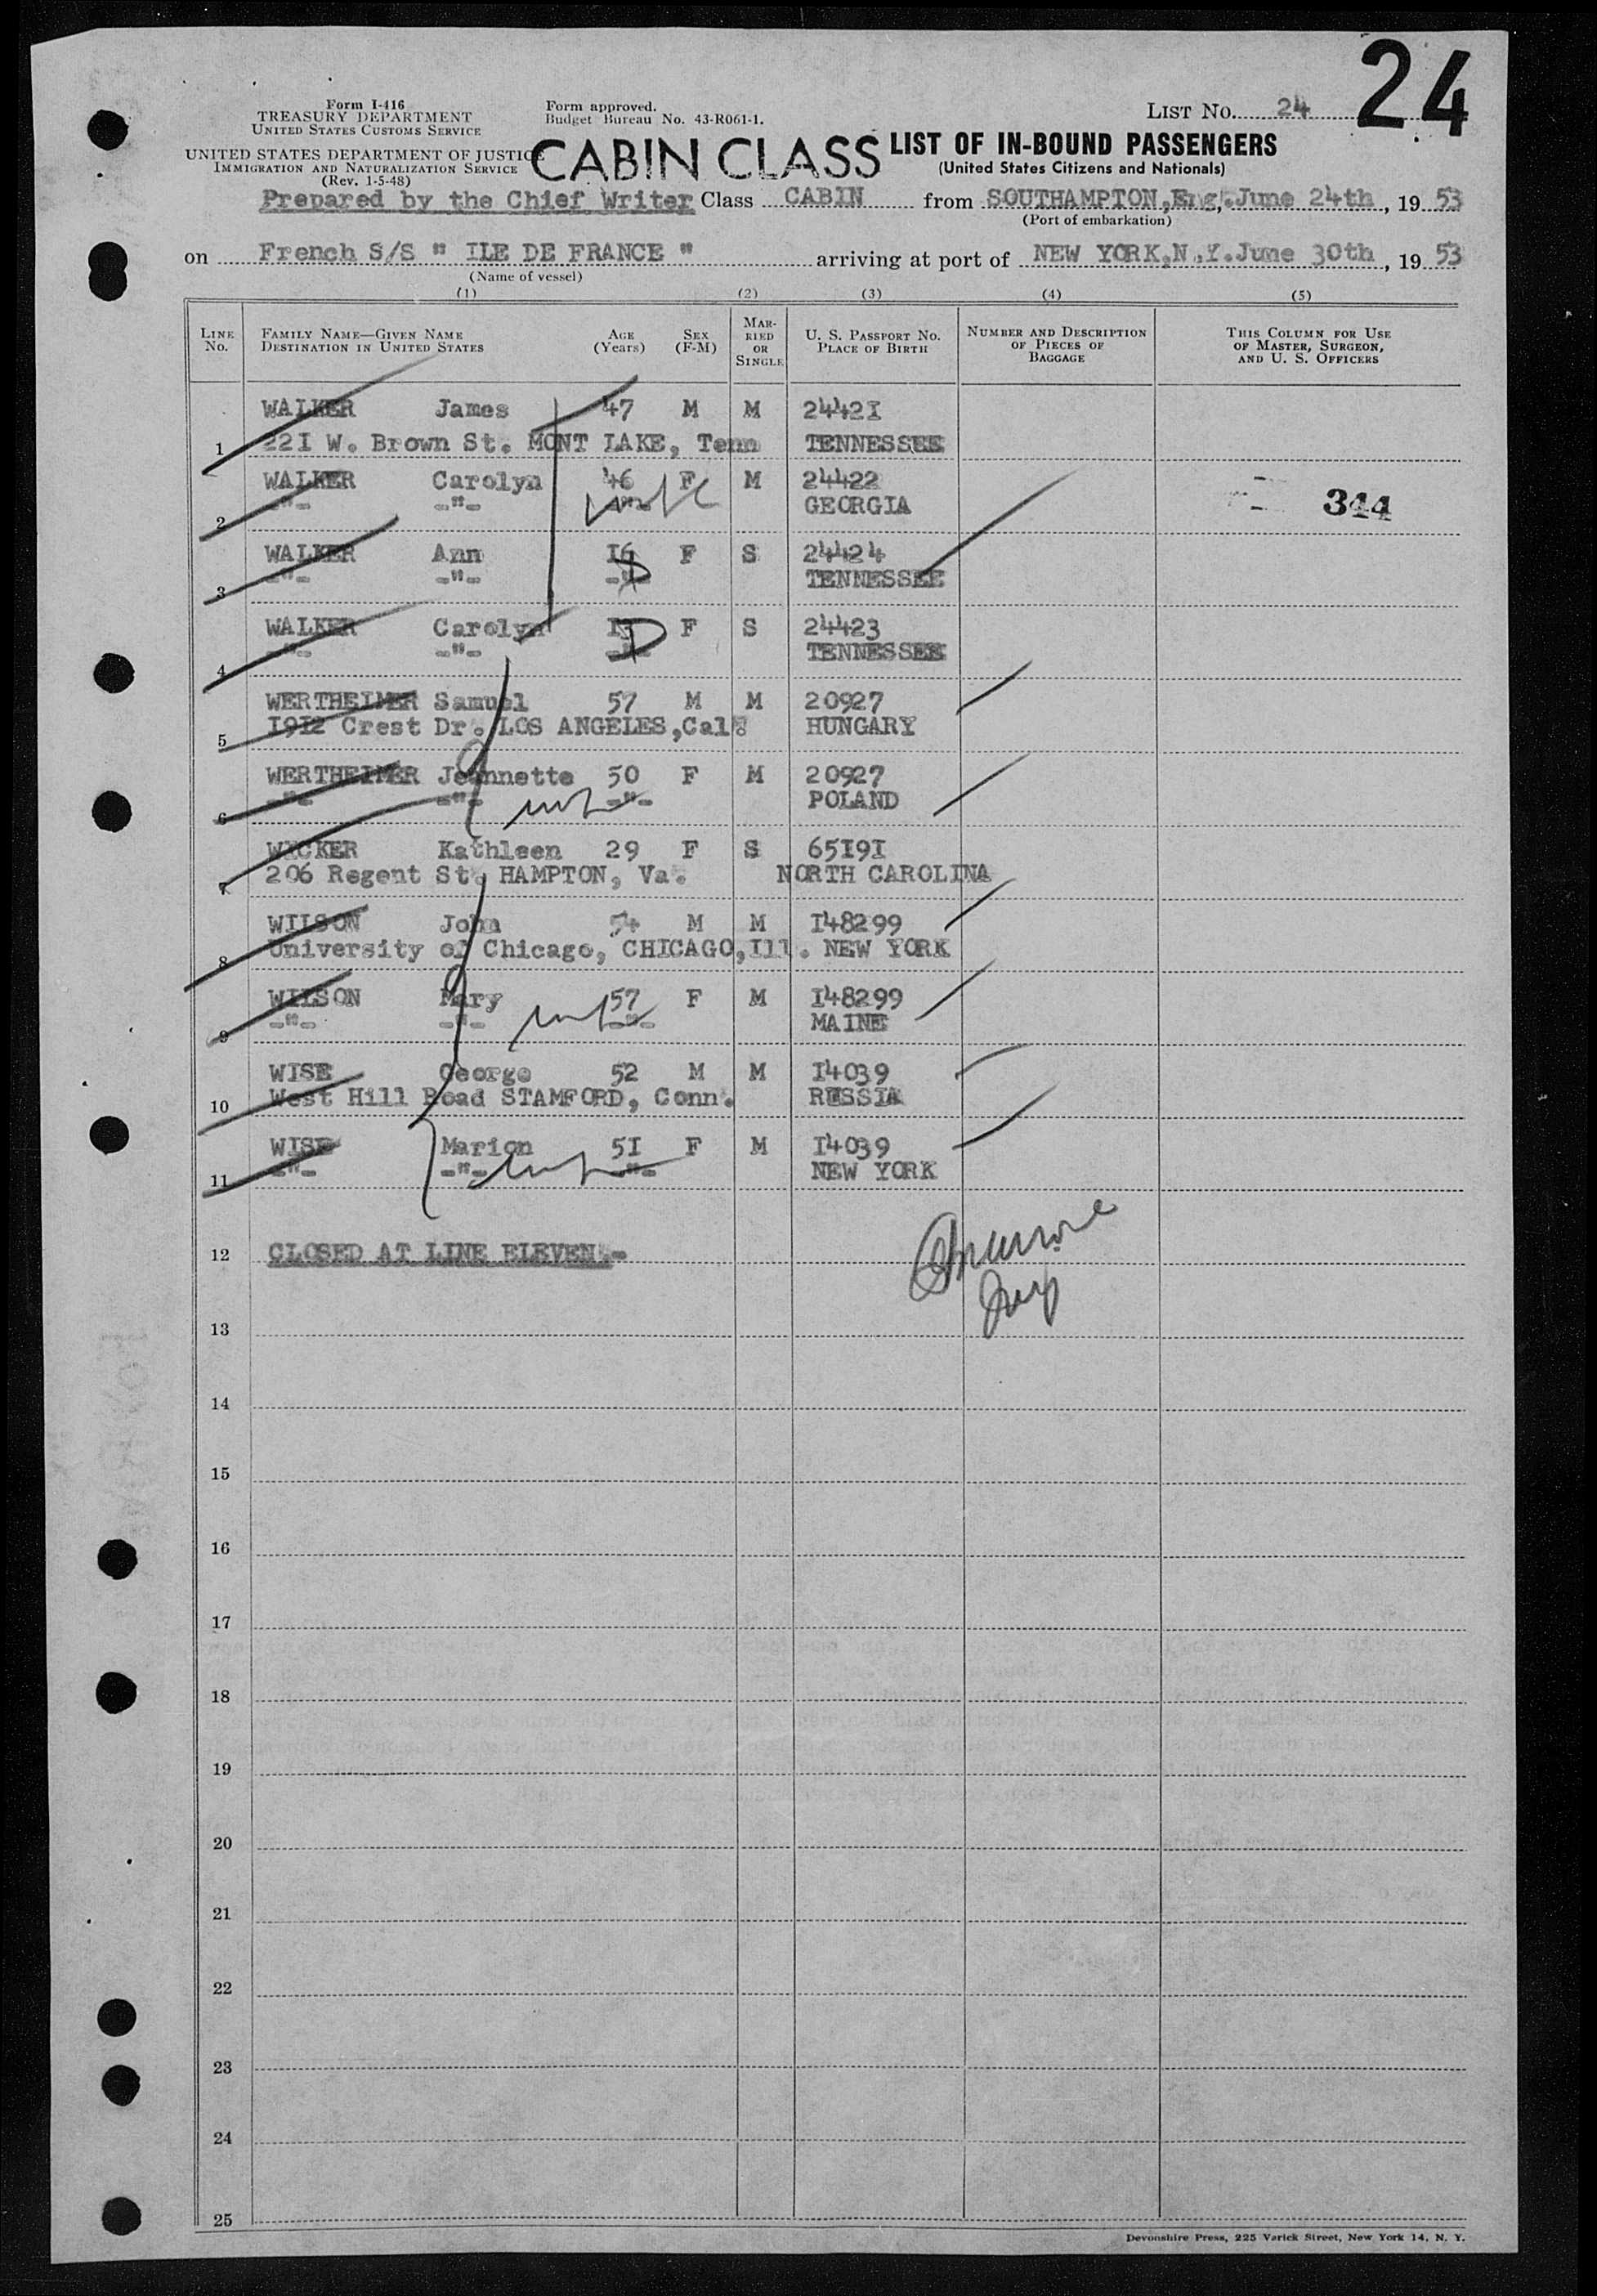 24
Form I-416
TREASURY DEPARTMENT
UNITED STATES CUSTOMS SERVICE
Form approved.
Budget Bureau No. 43-R061-1.
LIST No. 24
UNITED STATES DEPARTMENT OF JUSTICE
IMMIGRATION AND NATURALIZATION SERVICE
(Rev. 1-5-48)
CABIN CLASS
LIST OF IN-BOUND PASSENGERS
(United States Citizens and Nationals)
Prepared by the Chief Writer Class CABIN from SOUTHAMPTON,Eng,.June 24th, 19 53
(Port of embarkation)
on French S/S " ILE DE FRANCE " arriving at port of NEW YORK,N.Y.June 30th, 19 53
(Name of vessel)
(1) (2) (3) (4) (5)
LINE No. FAMILY NAME—GIVEN NAME DESTINATION IN UNITED STATES AGE (Years) SEX (F-M) MARRIED OR SINGLE U. S. PASSPORT NO. PLACE OF BIRTH NUMBER AND DESCRIPTION OF PIECES OF BAGGAGE THIS COLUMN FOR USE OF MASTER, SURGEON, AND U. S. OFFICERS
WALKER James 47 M M 2442I
1 22I W. Brown St. MONT LAKE, Tenn TENNESSEE
WALKER Carolyn 46 F M 24422
2 -"- -"- -"- GEORGIA 344
WALKER Ann I6 F S 24424
3 -"- -"- -"- TENNESSEE
WALKER Carolyn F S 24423
4 -"- -"- -"- TENNESSEE
WERTHEIMER Samuel 57 M M 20927
5 I9I2 Crest Dr. LOS ANGELES,Cal. HUNGARY
WERTHEIMER Jeannette 50 F M 20927
6 -"- -"- -"- POLAND
WICKER Kathleen 29 F S 65I9I
7 206 Regent St. HAMPTON, Va. NORTH CAROLINA
WILSON John 54 M M I48299
8 University of Chicago, CHICAGO,Ill. NEW YORK
WILSON Mary 57 F M I48299
9 -"- -"- -"- MAINE
WISE George 52 M M I4039
10 West Hill Road STAMFORD, Conn. RUSSIA
WISE Marion 5I F M I4039
11 -"- -"- -"- NEW YORK
12 CLOSED AT LINE ELEVEN.-
13
14
15
16
17
18
19
20
21
22
23
24
25
Devonshire Press, 225 Varick Street, New York 14, N. Y.